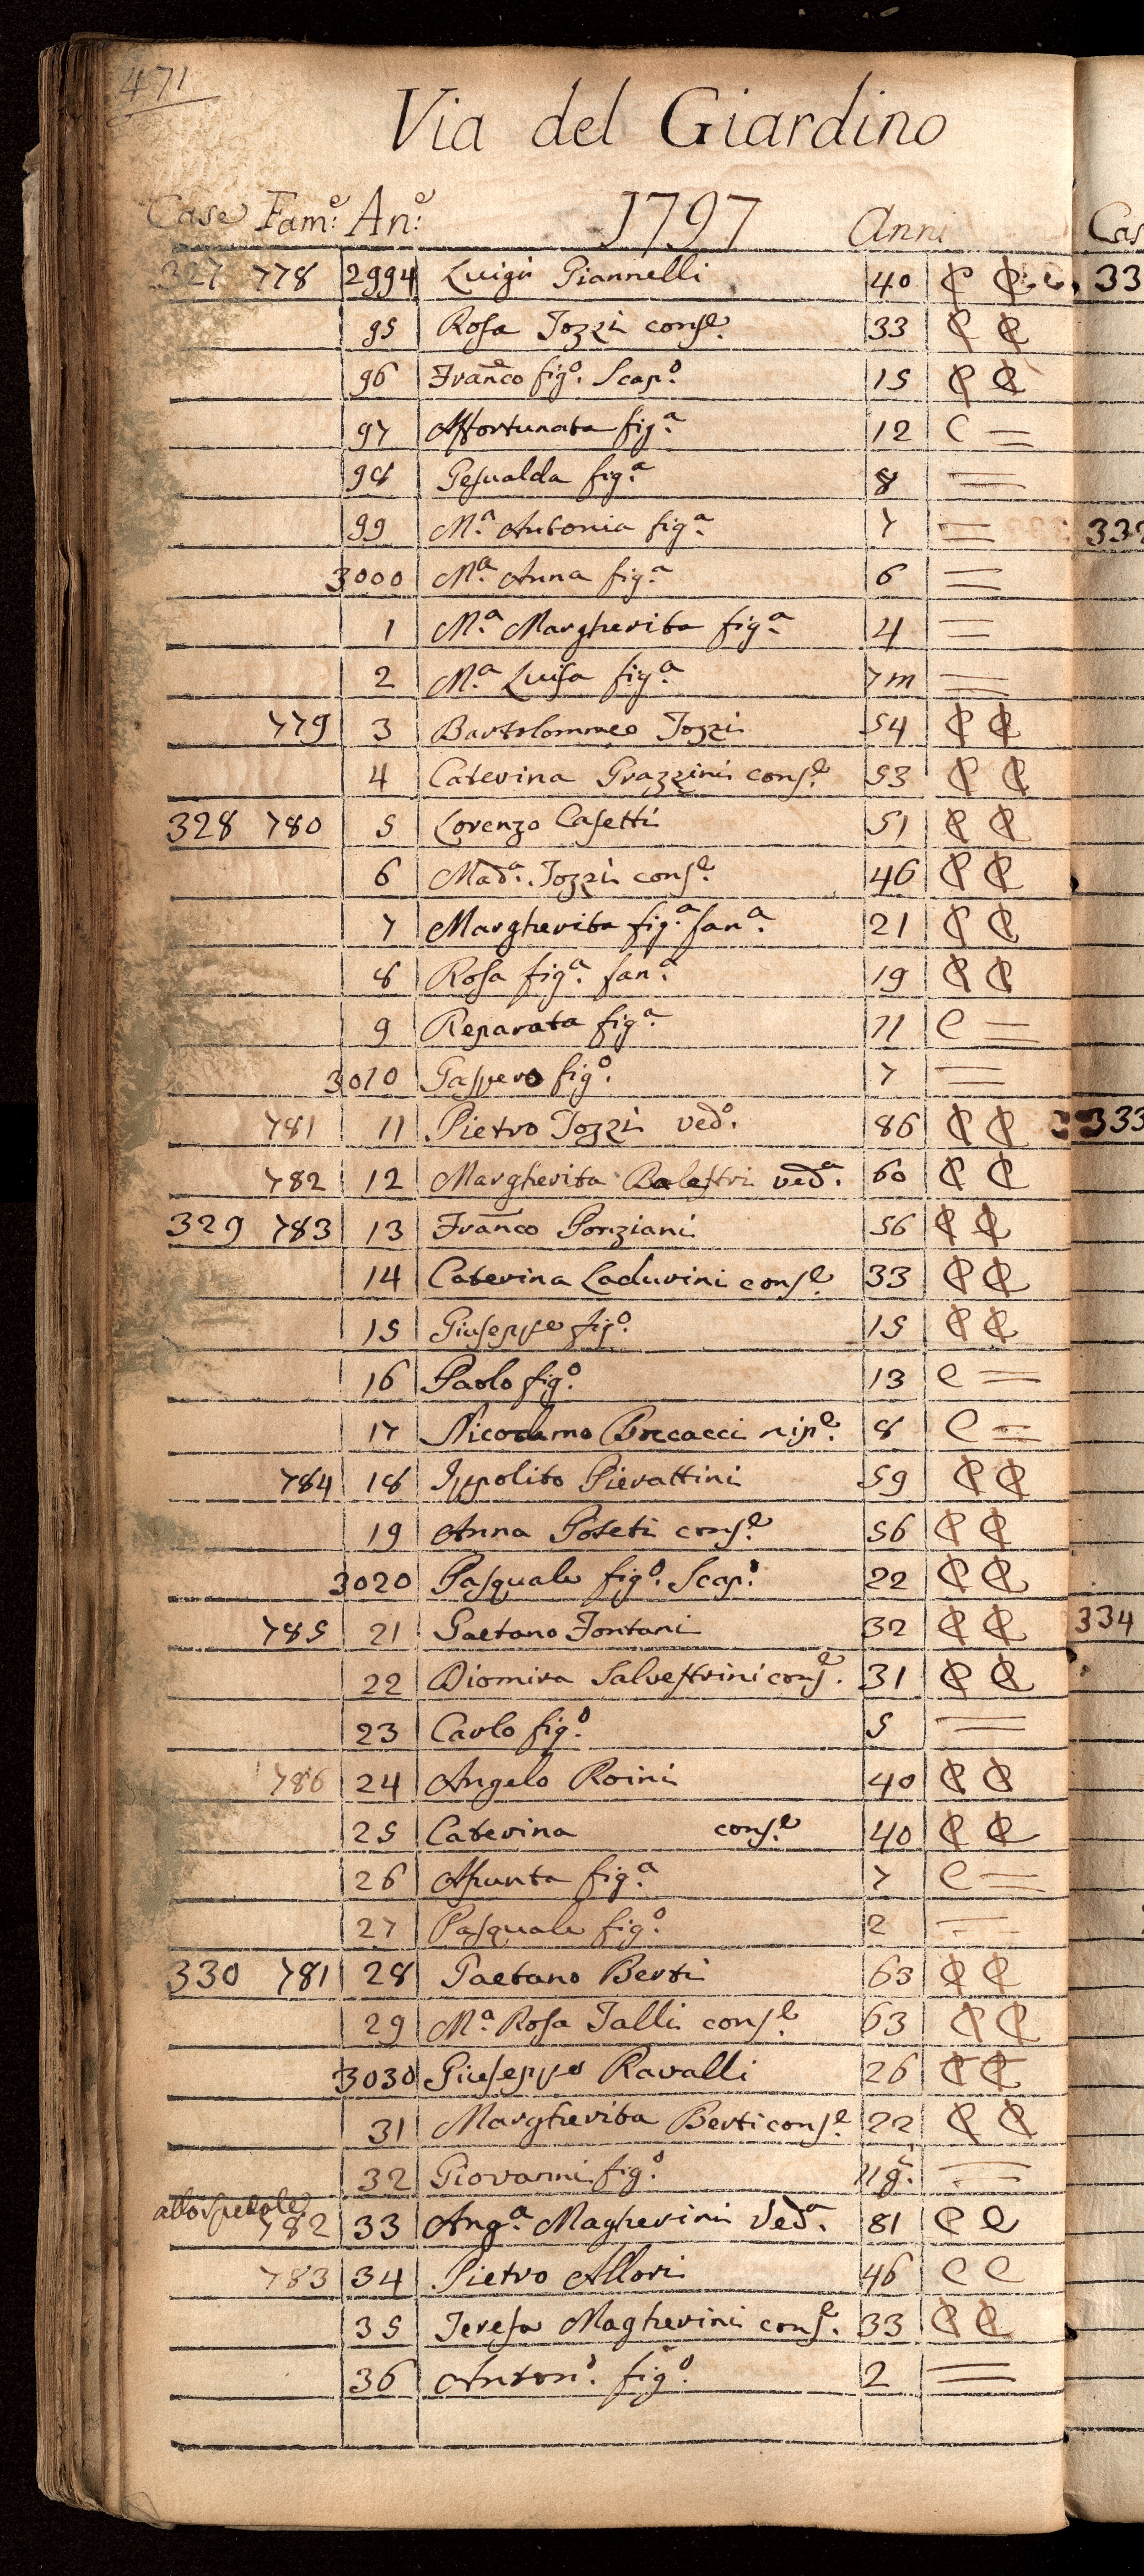 471
Via del Giardino
Case Fam:e An:e 1797 Anni
327 778 2994 Luigi Giannelli 40 C C
95 Rosa Tozzi cons.e 33 C C
96 Franco fig.o Scap.o 15 C C
97 Affortunata fig.a 12 C =
98 Gesualda fig.a 8 =
99 M.a Antonia fig.a 7 =
3000 M.a Anna fig.a 6 =
1 M.a Margherita fig.a 4 =
2 M.a Luisa fig.a 7 m =
779 3 Bartolommeo Tozzi 54 C C
4 Caterina Grazzini cons.e 53 C C
328 780 5 Lorenzo Casetti 51 C C
6 Mad.a Tozzi cons.e 46 C C
7 Margherita fig.a fan.a 21 C C
8 Rosa fig.a fan.a 19 C C
9 Reparata fig.a 11 C =
3010 Gaspero fig.o 7 =
781 11 Pietro Tozzi ved.o 86 C C
782 12 Margherita Balestri ved.a 60 C C
329 783 13 Franco Ponziani 56 C C
14 Caterina Ladurini cons.e 33 C C
15 Giuseppe fig.o 15 C C
16 Paolo fig.o 13 C =
17 Nicodemo Boccacci nip.e 8 C =
784 18 Ippolito Pierattini 59 C C
19 Anna Poteti cons.e 56 C C
3020 Pasquale fig.o Scap.o 22 C C
785 21 Gaetano Fontani 32 C C
22 Diomira Salvestrini cons.e 31 C C
23 Carlo fig.o 5 =
786 24 Angelo Roini 40 C C
25 Caterina cons.e 40 C C
26 Assunta fig.a 7 C =
27 Pasquale fig.o 2 =
330 781 28 Gaetano Berti 63 C C
29 M.a Rosa Talli cons.e 63 C C
3030 Giuseppe Ravalli 26 C C
31 Margherita Berti cons.e 22 C C
32 Giovanni fig.o 11 g. =
allo spedale
782 33 Ang.a Magherini Ved.a 81 C C
783 34 Pietro Allori 46 C C
35 Teresa Magherini cons.e 33 C C
36 Anton.o fig.o 2 =
Cas
33
333
334